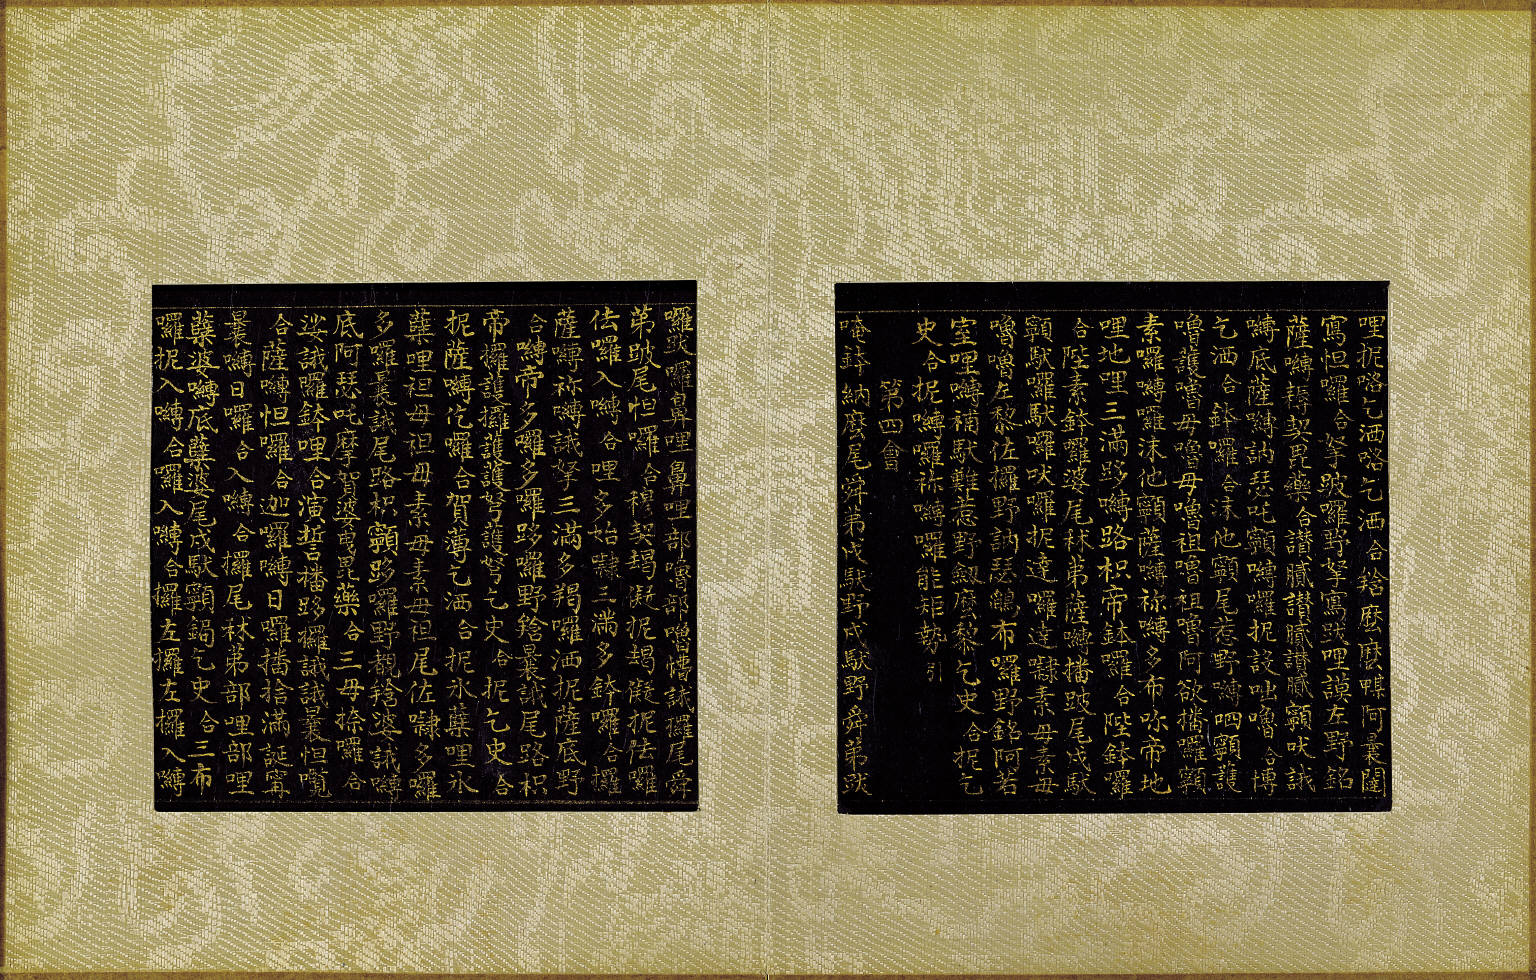 哩抳咯乞洒咯乞洒合捨麼麼鴨阿曩闥
寫怛囉合拏跛囉野拏寫跋哩謨左野銘
薩嚩耨契毘藥合讃膩讃膩讃膩顐吠誐
嚩底薩嚩訥瑟吒顐嚩囉抳設咄嚕合博
乞洒合鉢囉合沫他顐尾惹野嚩呬顐護
嚕護嚕毋嚕毋嚕祖嚕祖嚕阿欲播囉顐
素囉嚩囉沫他顐薩嚩祢嚩多布𠰷帝地
哩地哩三滿哆嚩路枳帝鉢囉合陛鉢囉
合陛素鉢囉婆尾秫弟薩嚩播跛尾戍馱
顐馱囉馱囉吠囉抳達囉達㘑素毋素毋
嚕嚕左黎佐攞野訥瑟鵮布囉野銘阿若
室哩嚩補馱難惹野劔麼黎乞史合抳乞
史合抳嚩囉祢嚩囉能矩勢引
第四會
唵鉢納麼尾舜弟戍馱野戍馱野舜弟跋
囉跋囉鼻哩鼻哩部嚕部嚕懵誐攞尾舜
弟跛尾怛囉合穆契朅儗抳朅儗抳佉囉
佉囉入嚩合哩多始㘑三滿多鉢囉合攞
薩嚩祢嚩誐拏三滿多羯囉洒抳薩底野
合嚩帝多囉多囉哆囉野捨曩誐尾路枳
帝攞護攞護護弩護弩乞史合抳乞史合
抳薩嚩仡囉合賀薄乞洒合抳氷蘖哩氷
蘖哩祖毋祖毋素毋素毋祖尾佐㘑多囉
多囉曩誐尾路枳顐哆囉野覩捨婆誐嚩
底阿瑟吒摩賀婆曳毘藥合三毋捺囉合
娑誐囉鉢哩合演哲播哆攞誐誐曩怛㘕
合薩嚩怛囉合迦囉嚩日囉播捨滿誕甯
曩嚩日囉合入嚩合攞尾秫弟部哩部哩
蘖婆嚩底蘖婆尾戍馱顐鍋乞史合三布
囉抳入嚩合囉入嚩合攞左攞左攞入嚩